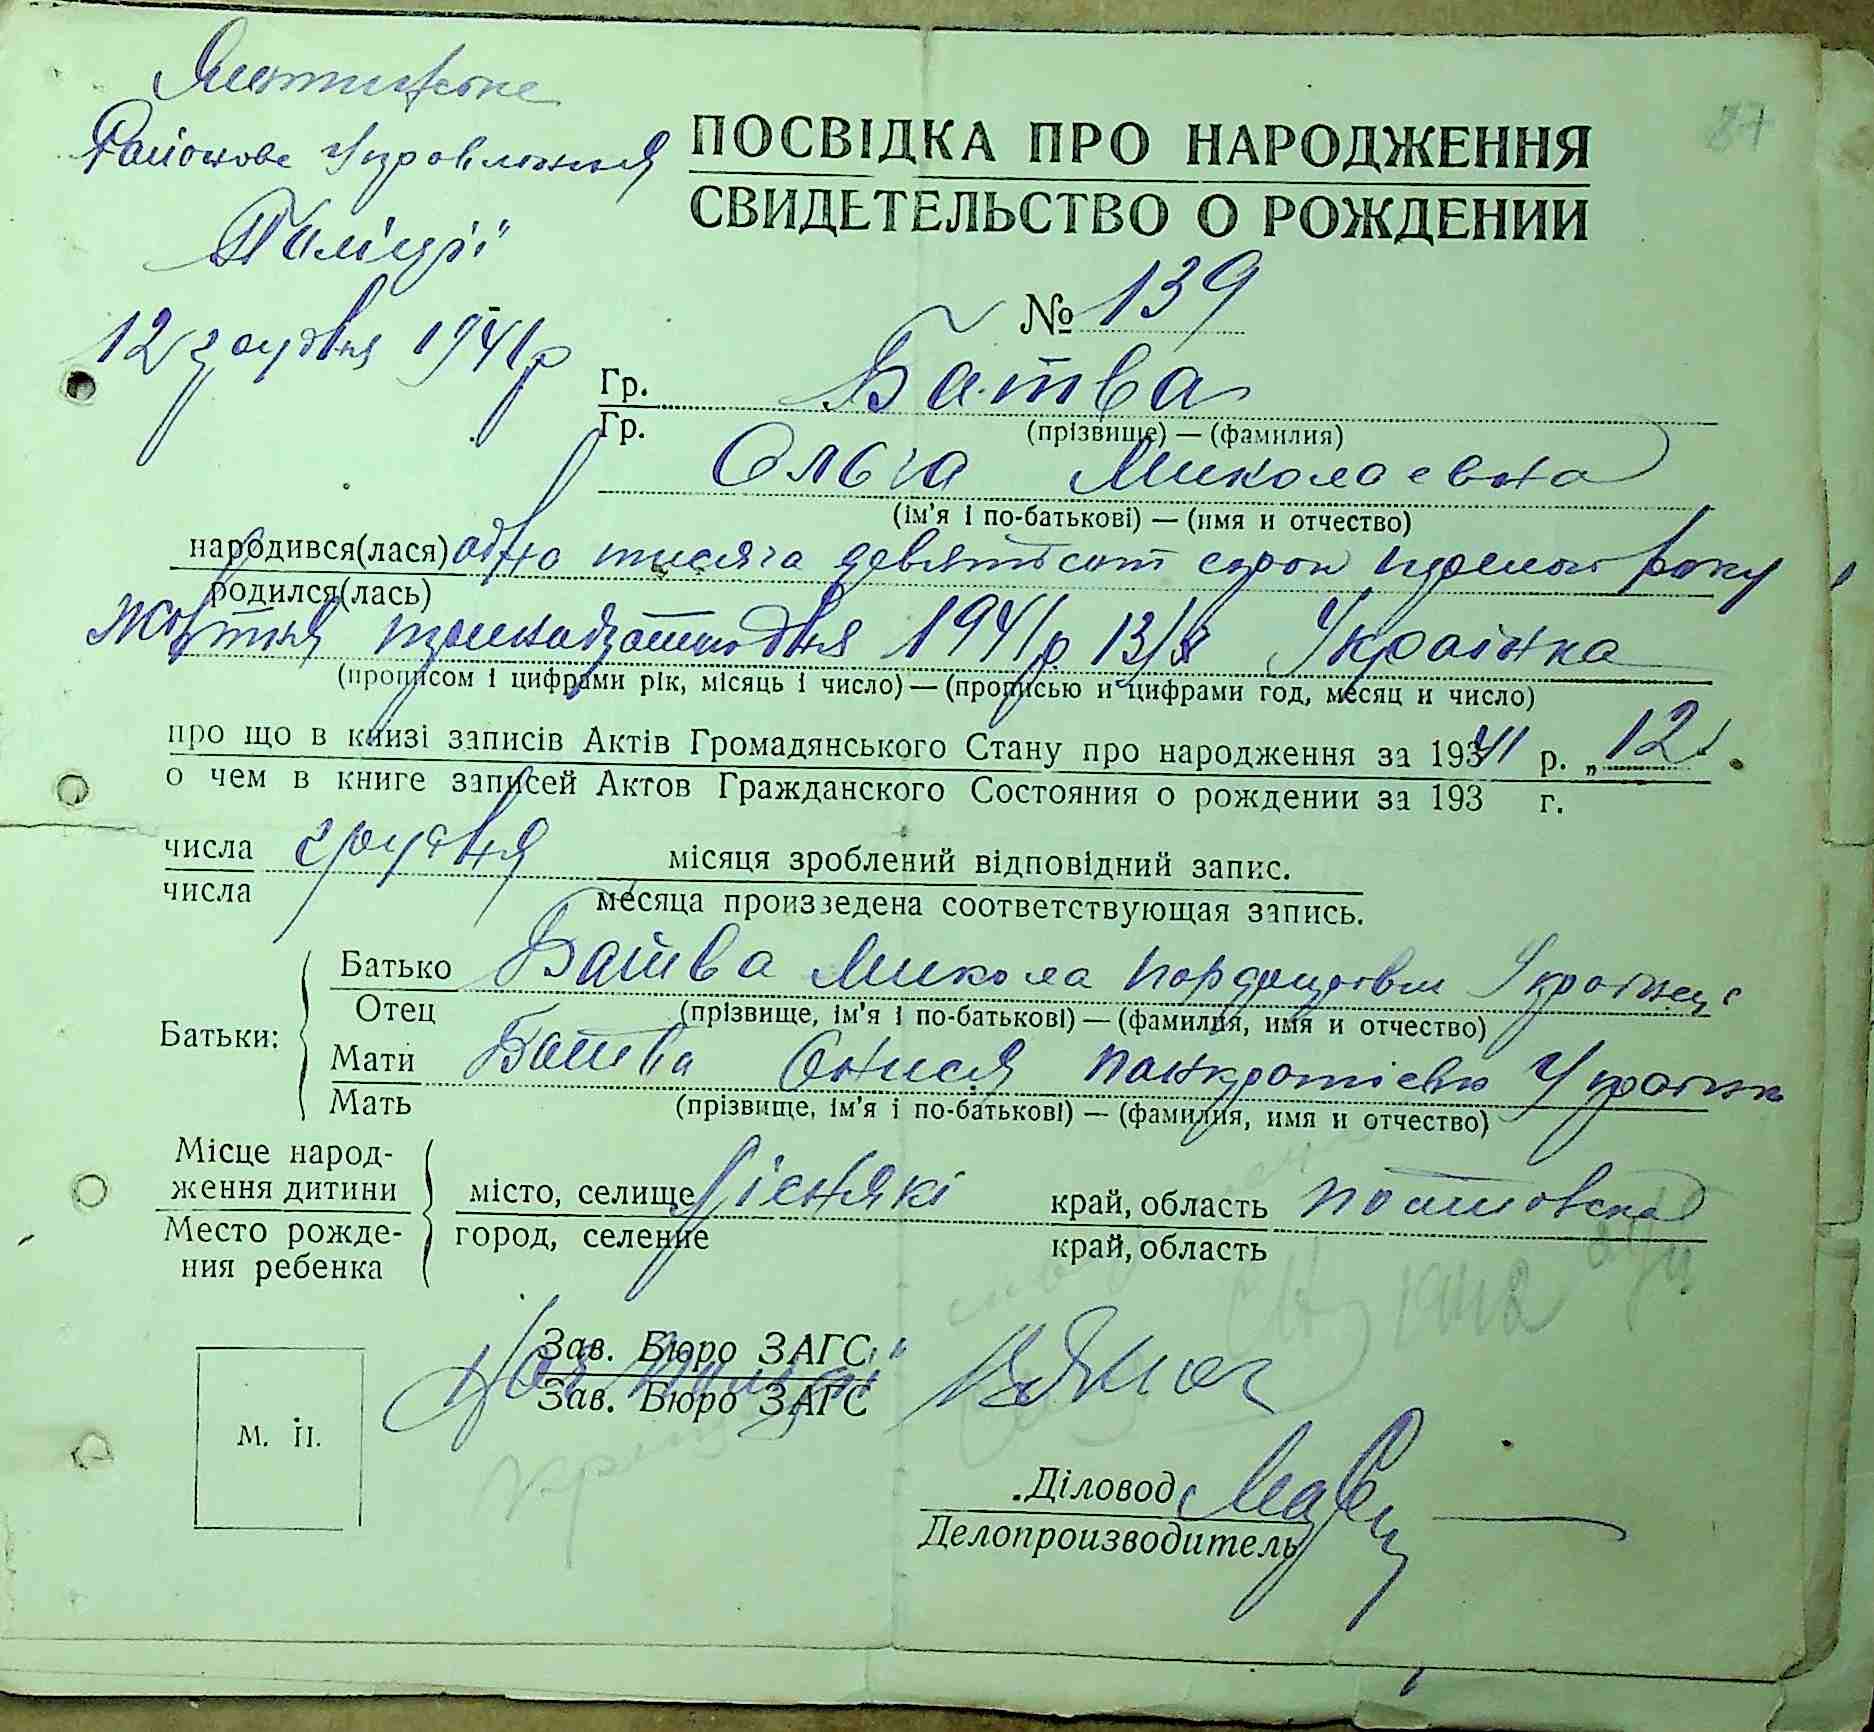 Районове Управління
Поліції
12 грудня 1941 р
ПОСВІДКА ПРО НАРОДЖЕННЯ
СВИДЕТЕЛЬСТВО О РОЖДЕНИИ
87
№ 139
Гр. Батва
Гр.
(прізвище) — (фамилия)
Ольга Миколаевна
(ім'я і по-батькові) — (имя и отчество)
народився(лася) одно тисяча девятьсот сорок року
родился(лась)
Жовтня тринадцятого дня 1941 р 13/X Українка
(прописом і цифрами рік, місяць і число) — (прописью и цифрами год, месяц и число)
про що в книзі записів Актів Громадянського Стану про народження за 193 41 р. „ 12
о чем в книге записей Актов Гражданского Состояния о рождении за 193 г.
числа грудня місяця зроблений відповідний запис.
числа месяца произведена соответствующая запись.
Батьки:
Батько Батва Микола Українец
Отец (прізвище, ім'я і по-батькові) — (фамилия, имя и отчество)
Мати Батва Онися Панкратіевна Українк
Мать (прізвище, ім'я і по-батькові) — (фамилия, имя и отчество)
Місце народ-
ження дитини місто, селище Пісняки край, область Полтовска
Место рожде- город, селение край, область
ния ребенка
1942
Зав. Бюро ЗАГС
Нач Поліції
Зав. Бюро ЗАГС
М. П.
Діловод
Делопроизводитель